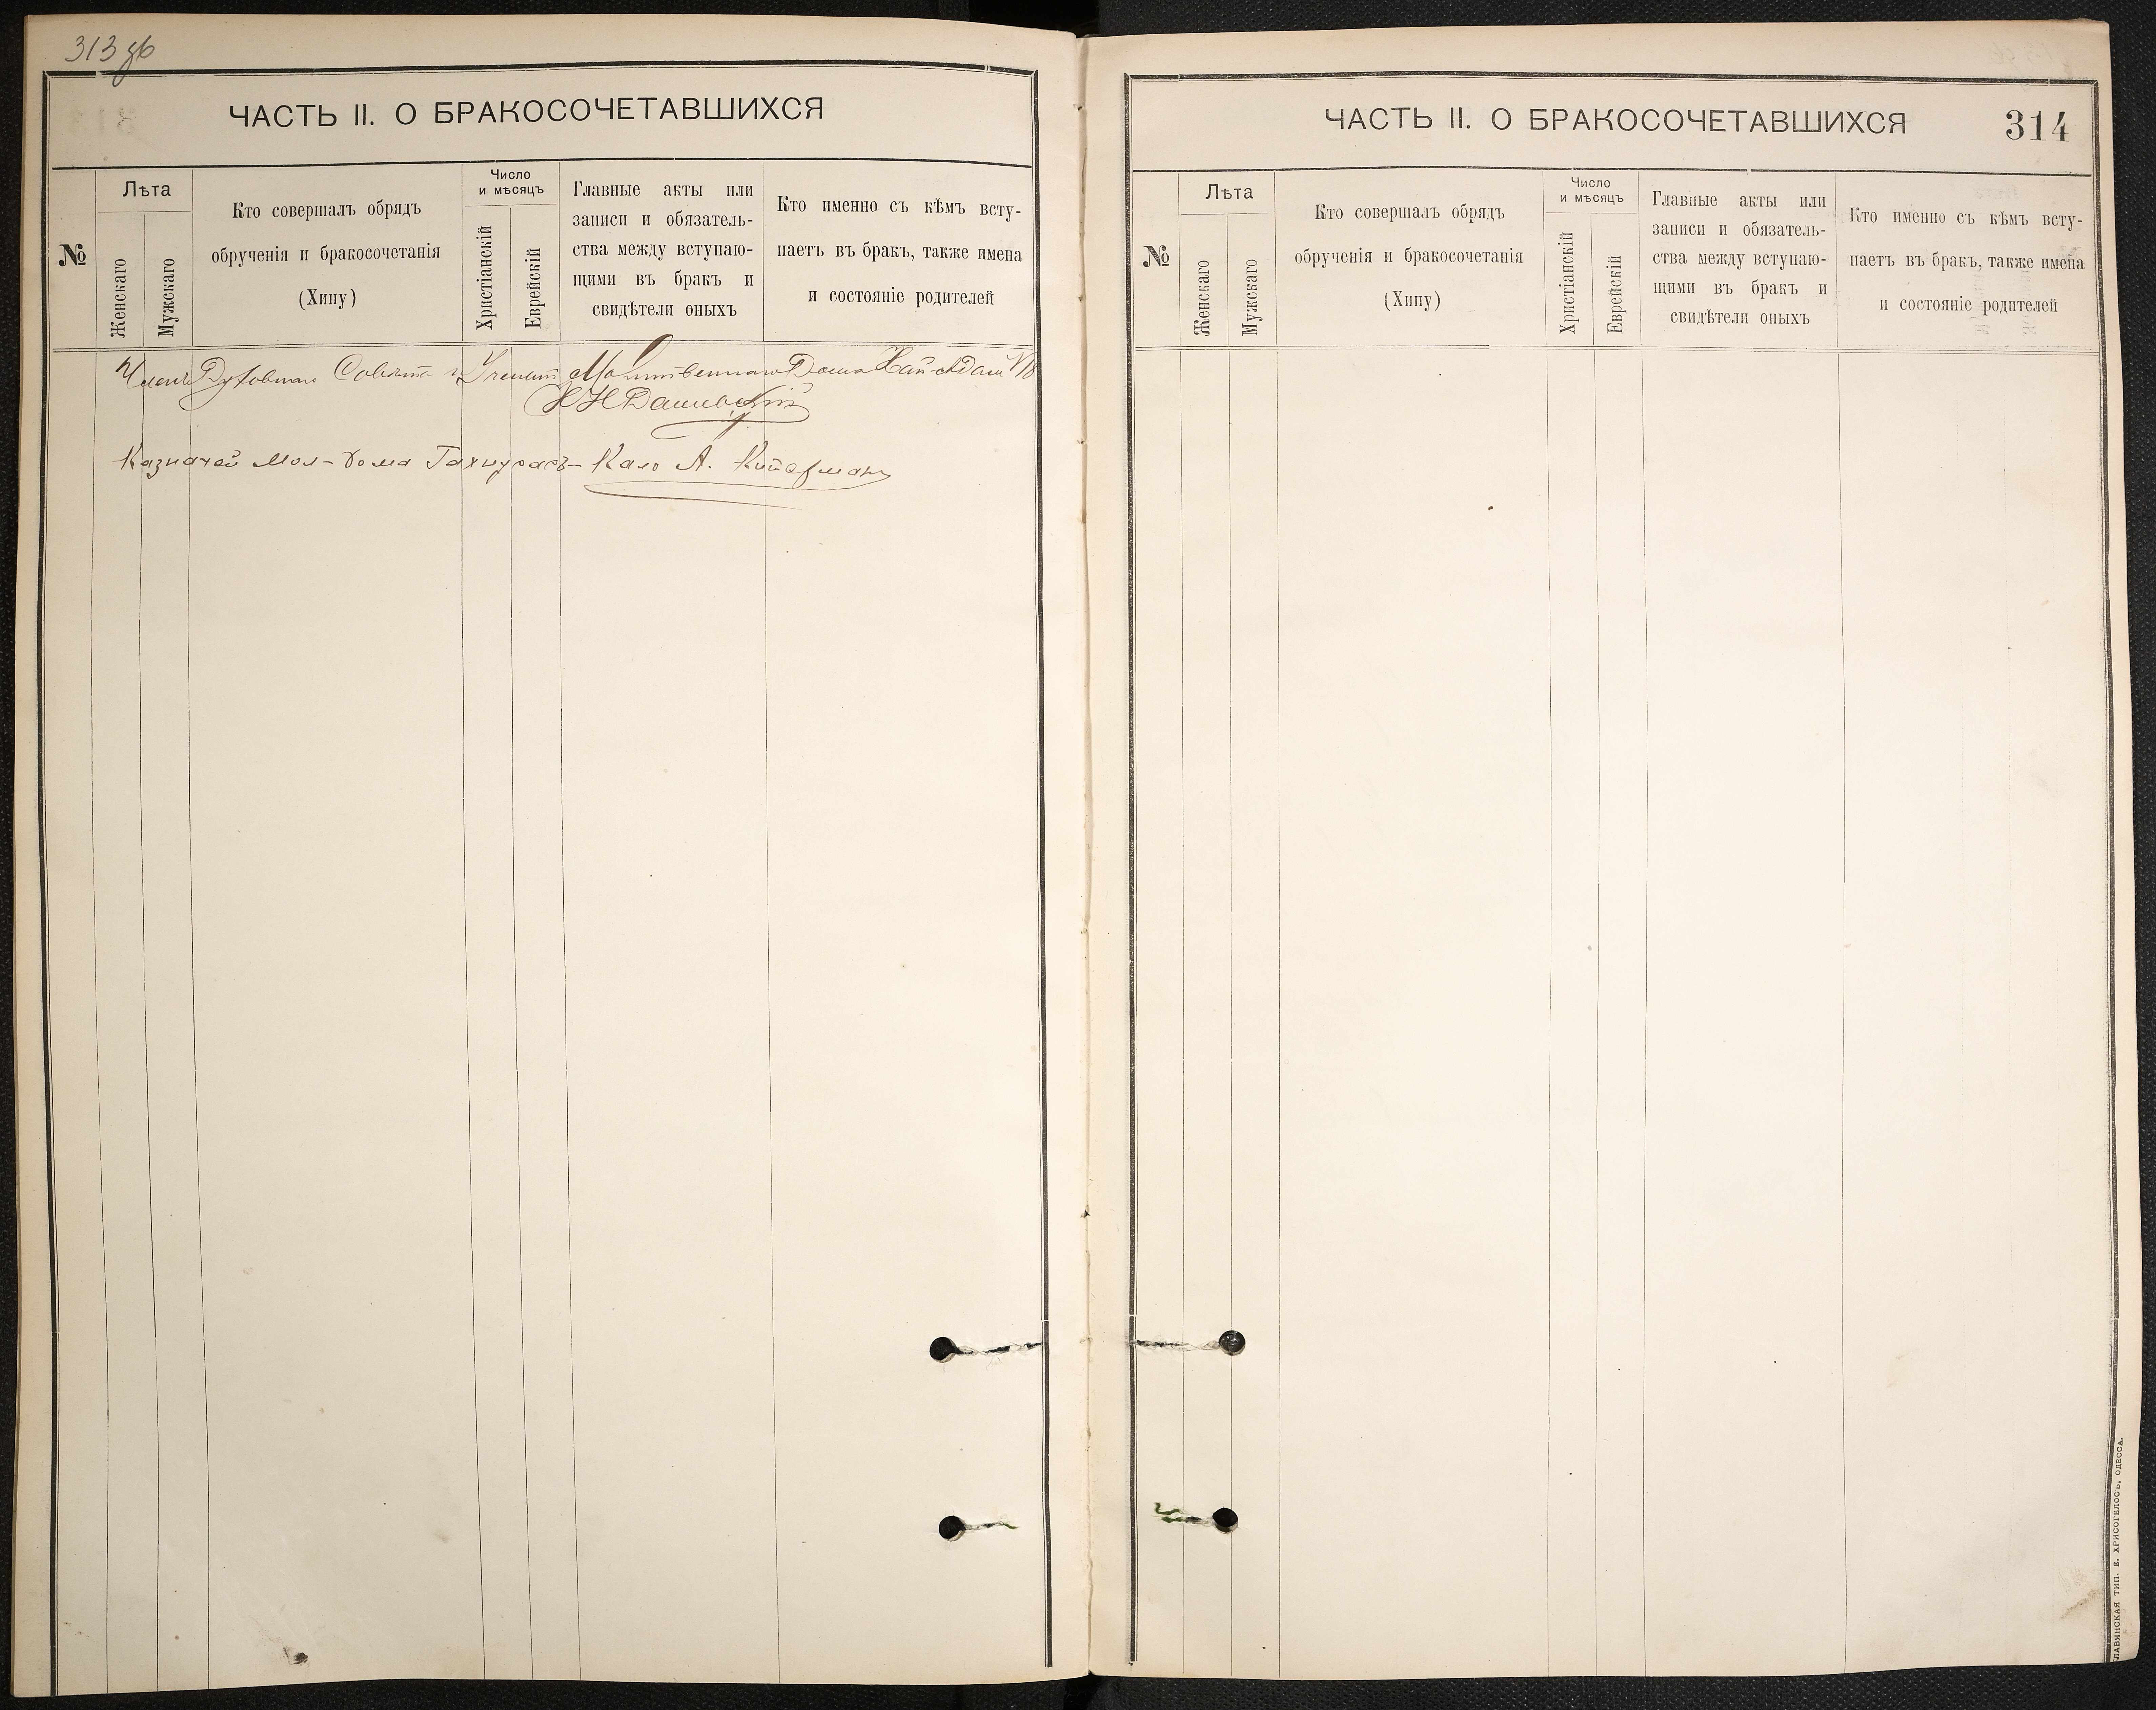 313 об
ЧАСТЬ II. О БРАКОСОЧЕТАВШИХСЯ
№
Лѣта
Женскаго
Мужскаго
Кто совершалъ обрядъ
обрученія и бракосочетанія
(Хипу)
Число
и мѣсяцъ
Христіанскій
Еврейскій
Главные акты или
записи и обязатель-
ства между вступаю-
щими въ бракъ и
свидѣтели оныхъ
Кто именно съ кѣмъ всту-
паетъ въ бракъ, также имена
и состояніе родителей
Членъ Духовнаго Совѣта и Ученый Молитвеннаго Дома Хаи-Адамъ
Дашевскій
Казначей Мол-дома А. Куперманъ
ЧАСТЬ II. О БРАКОСОЧЕТАВШИХСЯ
314
№
Лѣта
Женскаго
Мужскаго
Кто совершалъ обрядъ
обрученія и бракосочетанія
(Хипу)
Число
и мѣсяцъ
Христіанскій
Еврейскій
Главные акты или
записи и обязатель-
ства между вступаю-
щими въ бракъ и
свидѣтели оныхъ
Кто именно съ кѣмъ всту-
паетъ въ бракъ, также имена
и состояніе родителей
СЛАВЯНСКАЯ ТИП. Е. ХРИСОГЕЛОСЪ, ОДЕССА.